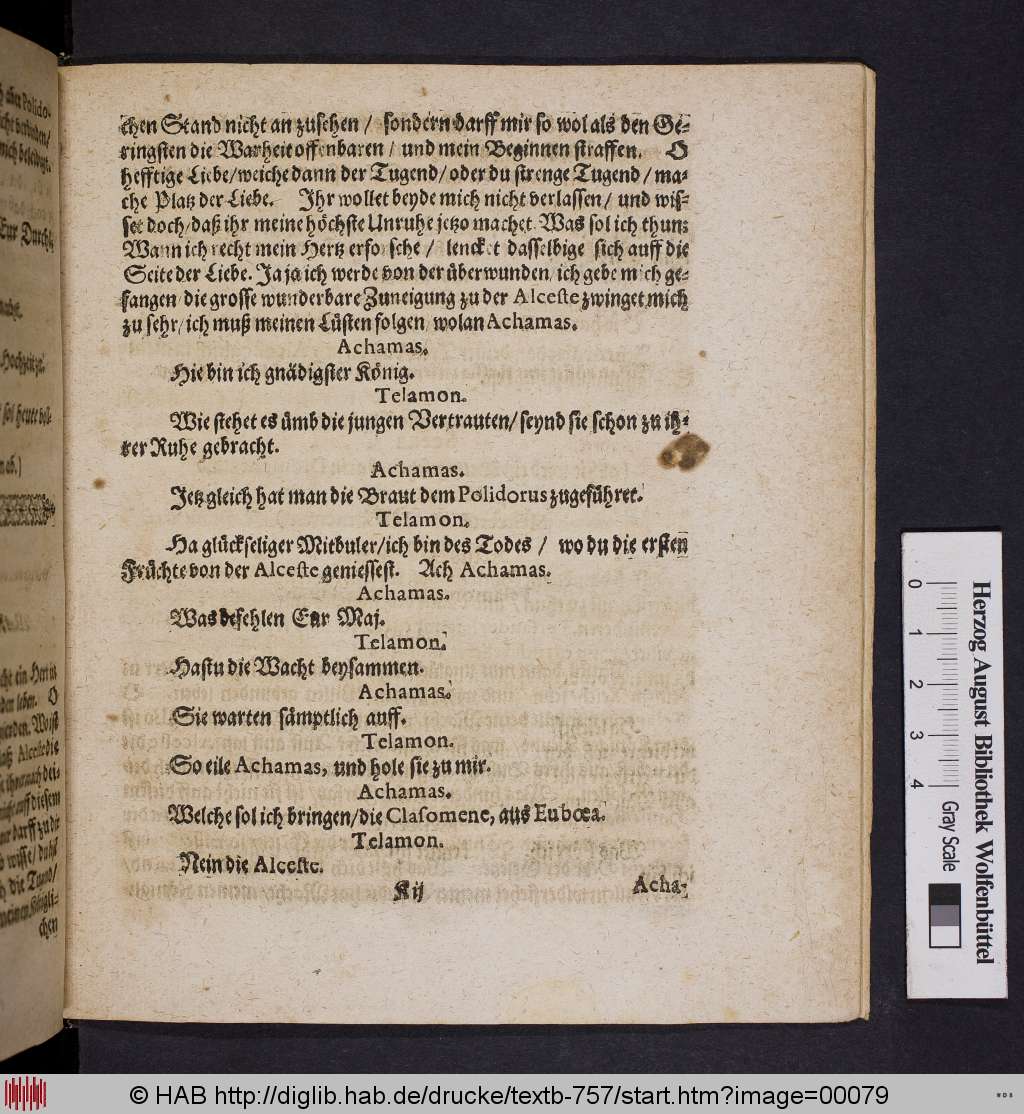 chen Stand nicht an zusehen / sondern darff mir so wol als den Ge-
ringsten die Warheit offenbaren / und mein Beginnen straffen. O
hefftige Liebe / weiche dann der Tugend / oder du strenge Tugend / ma-
che Platz der Liebe. Ihr wollet beyde mich nicht verlassen / und wis-
set doch / daß ihr meine höchste Unruhe jetzo machet. Was sol ich thun:
Wann ich recht mein Hertz erforsche / lencket dasselbige sich auff die
Seite der Liebe. Ja ja ich werde von der überwunden / ich gebe mich ge-
fangen / die grosse wunderbare Zuneigung zu der Alceste zwinget mich
zu sehr / ich muß meinen Lüsten folgen / wolan Achamas.
Achamas.
Hie bin ich gnädigster König.
Telamon.
Wie stehet es ümb die jungen Vertrauten / seynd sie schon zu ih-
rer Ruhe gebracht.
Achamas.
Jetz gleich hat man die Braut dem Polidorus zugeführet.
Telamon.
Ha glückseliger Mitbuler / ich bin des Todes / wo du die ersten
Früchte von der Alceste geniessest. Ach Achamas.
Achamas.
Was befehlen Eur Maj.
Telamon.
Hastu die Wacht beysammen.
Achamas.
Sie warten sämptlich auff.
Telamon.
So eile Achamas, und hole sie zu mir.
Achamas.
Welche sol ich bringen / die Clasomene, aus Eubœa.
Telamon.
Nein die Alceste.
K ij
Acha-
0 1 2 3 4
Herzog August Bibliothek Wolfenbüttel
Gray Scale
© HAB http://diglib.hab.de/drucke/textb-757/start.htm?image=00079